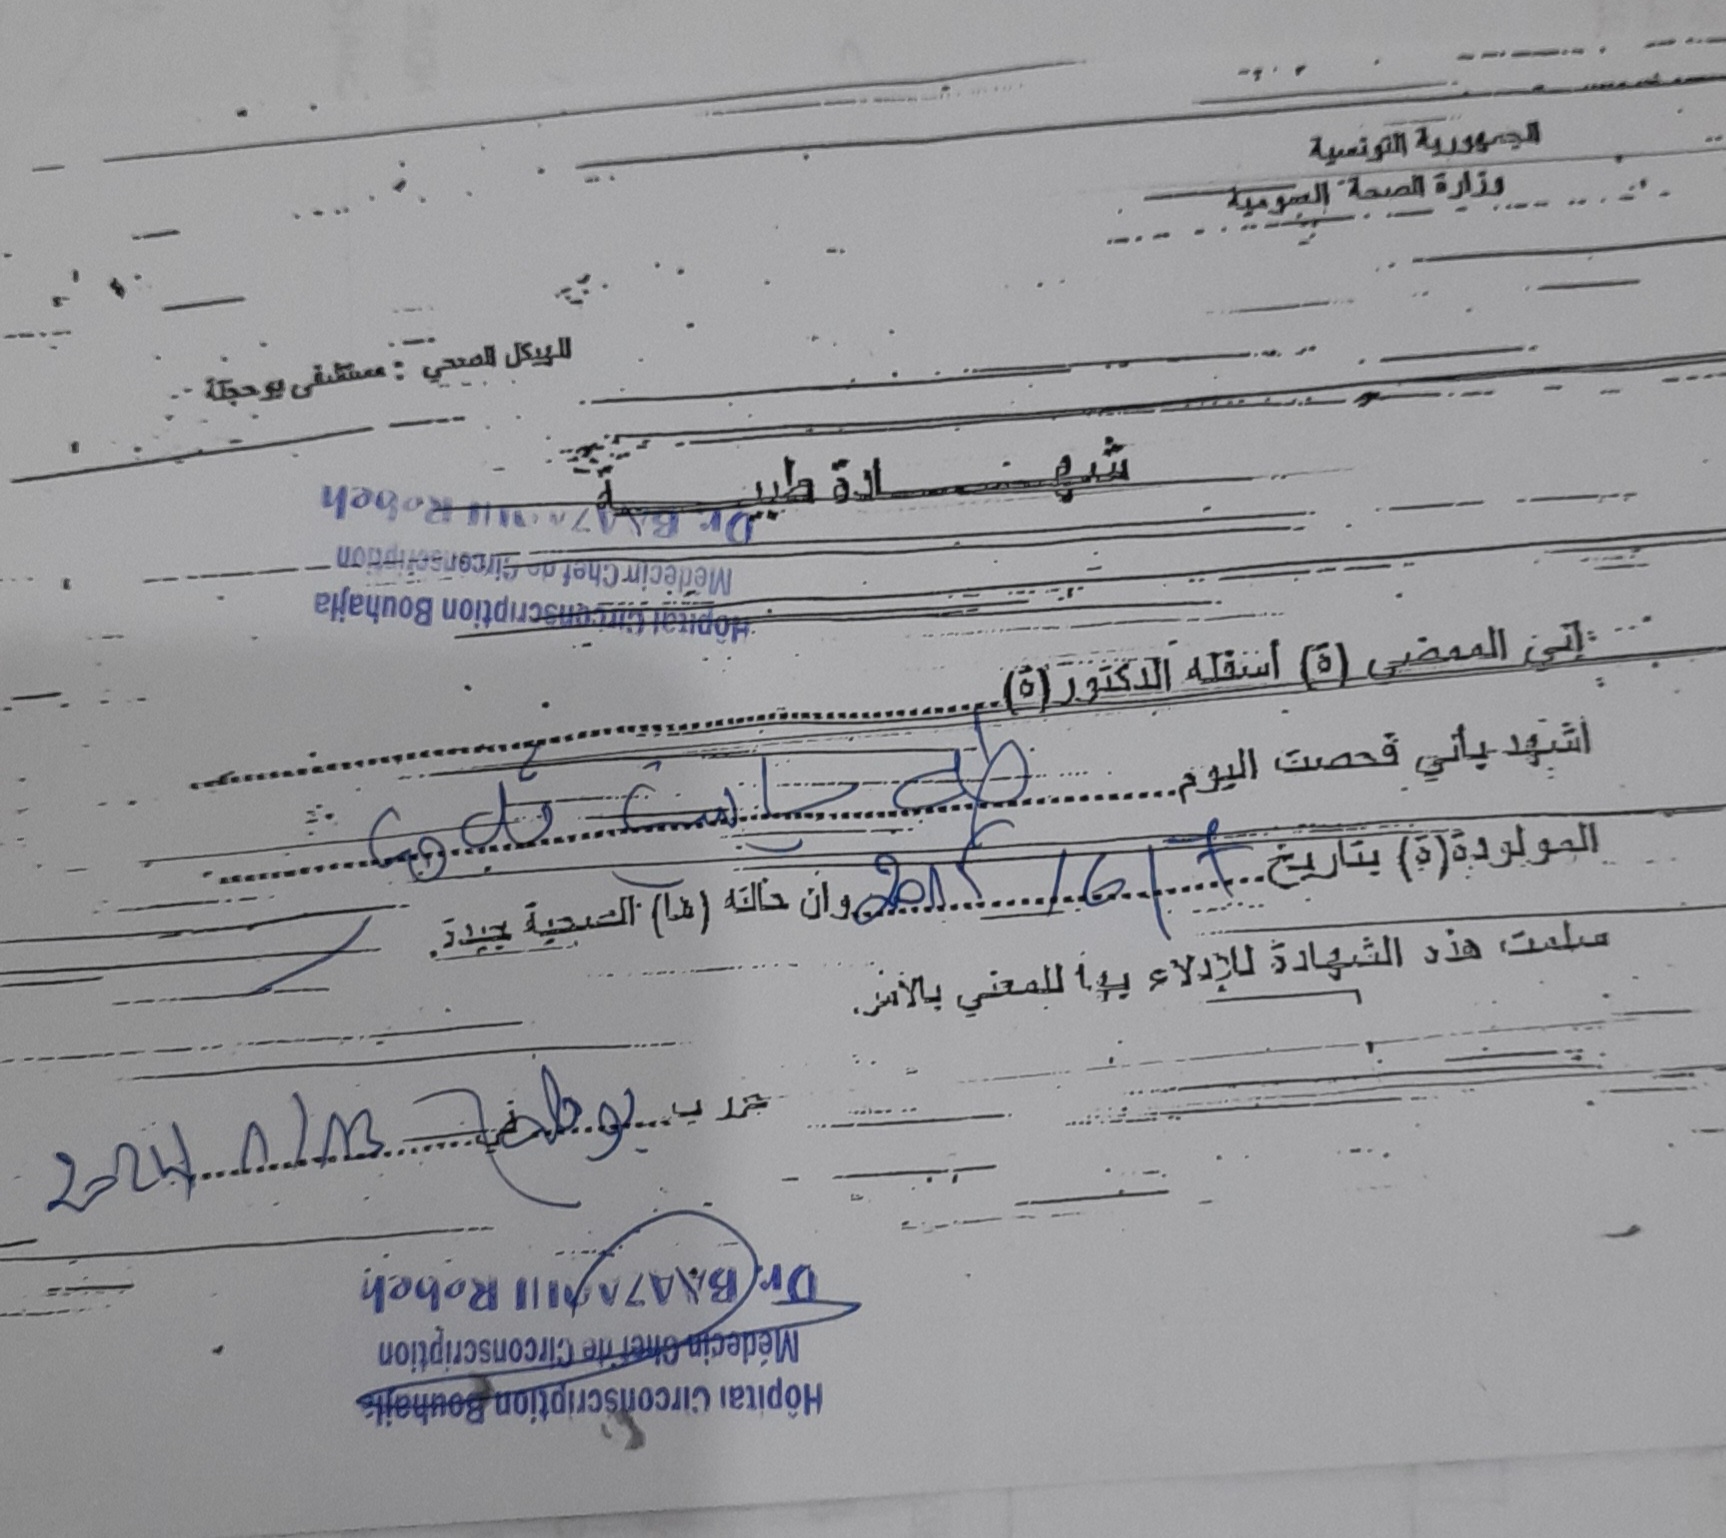 الجمهورية التونسية
وزارة الصحة العمومية
الهيكل الصحي : مستشفى بوحجلة
شهـــــادة طبيـــــة
Dr. Robeh
Médecin Chef de Circonscription
Hôpital Circonscription Bouhajla
إني الممضي (ة) أسفله الدكتور(ة)
أشهد بأني فحصت اليوم
المولودة(ة) بتاريخ وان حالته (ها) الصحية جيدة.
سلمت هذه الشهادة للإدلاء بها للمعني بالأمر.
حرر ب في 2024
Dr. Robeh
Médecin Chef de Circonscription
Hôpital Circonscription Bouhajla